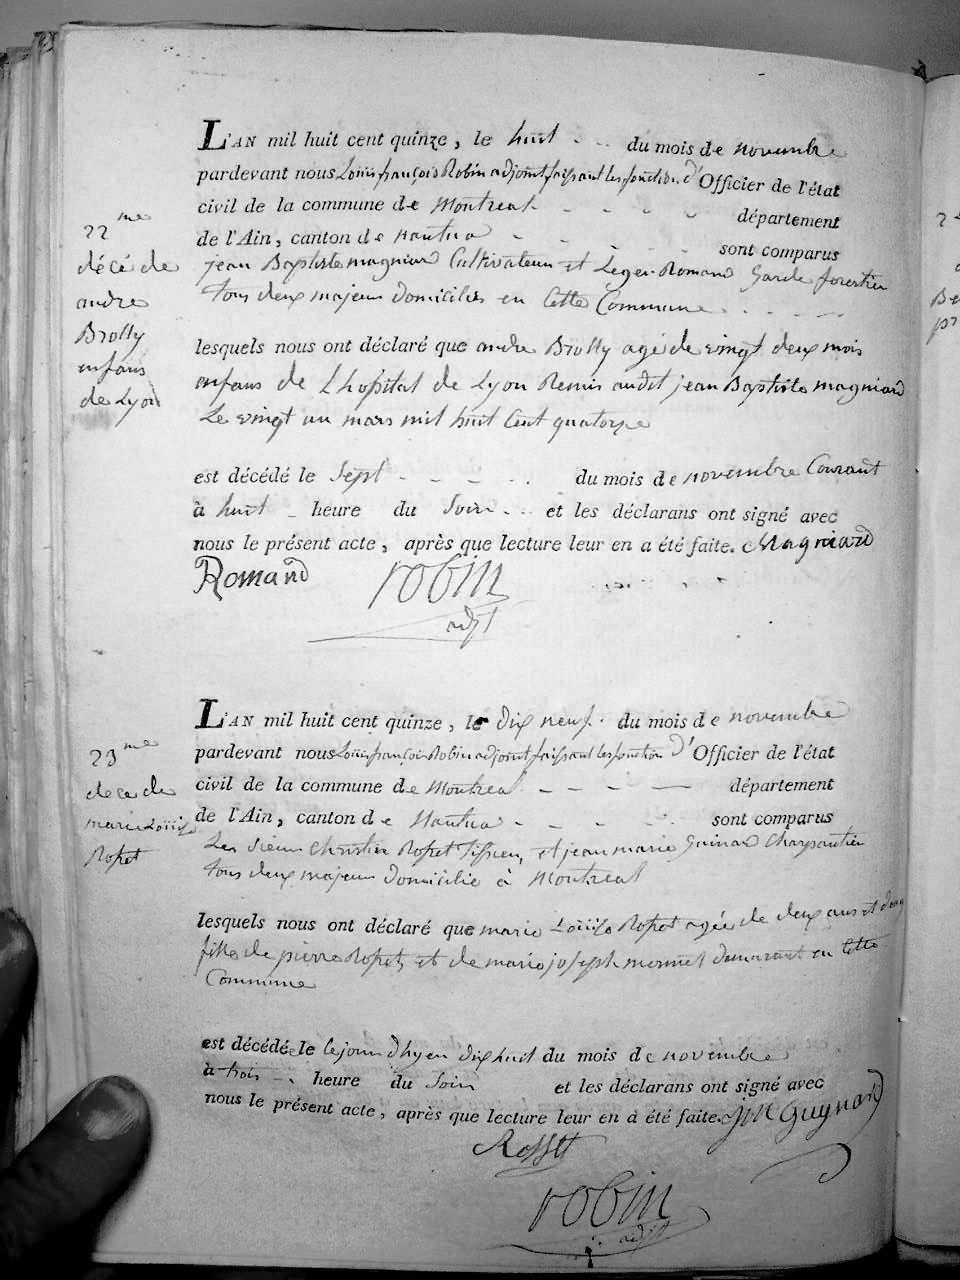 L'AN mil huit cent quinze, le huit du mois de novembre
pardevant nous Louis françois Robin adjoint faissant les fonction d'Officier de l'état
civil de la commune de Montreal département
de l'Ain, canton de nantua sont comparus
jean Baptiste magniard Cultivateur et Leger Romand Garde forestier
tous deux majeur domiciliés en Cette Commune
lesquels nous ont déclaré que andre Brolly agé de vingt deux mois
enfans de Lhospital de Lyon Remis audit jean Baptiste magniard
Le vingt un mars mil huit Cent quatorze
est décédé le Sept du mois de novembre Courant
à huit heure du Soir et les déclarans ont signé avec
nous le présent acte, après que lecture leur en a été faite. Magniard
Romand robin
adjt
22me
décé de
andre
Brolly
enfans
de Lyon
L'AN mil huit cent quinze, le dix neuf du mois de novembre
pardevant nous Louis françois Robin adjoint faissant les fonction d'Officier de l'état
civil de la commune de Montreal département
de l'Ain, canton de Nantua sont comparus
Les Sieur Christin Ropet Tissieu et jean marie Guinard Charpantier
tous deux majeur domicilié à Montreal
lesquels nous ont déclaré que marie Louise Ropet agée de deux ans et demy
fille de pierre Ropet, et de marie joseph monnet demurant en Cette
Commune
est décédé le le jour dhyer dix huit du mois de novembre
à trois heure du Soir et les déclarans ont signé avec
nous le présent acte, après que lecture leur en a été faite. JM Guynard
Rosset
robin
adjt
23me
dece de
marie Louise
Ropet